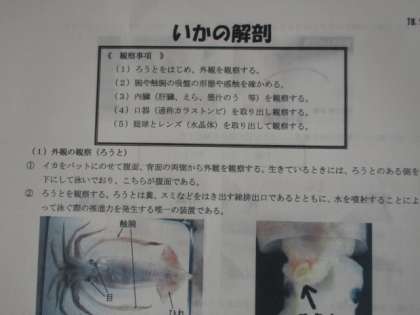 いかの解剖
《 観察事項 》
(1) ろうとをはじめ、外観を観察する。
(2) 腕や触腕の吸盤の形態や感触を確かめる。
(3) 内臓(肝臓、えら、墨汁のう 等)を観察する。
(4) 口器(通称カラストンビ)を取り出して観察する。
(5) 眼球とレンズ(水晶体)を取り出して観察する。
(1) 外観の観察(ろうと)
① イカをバットにのせて腹面、背面の両側から外観を観察する。生きているときには、ろうとのある側を
下にして泳いでおり、こちらが腹面である。
② ろうとを観察する。ろうとは糞、スミなどをはき出す総排出口であるとともに、水を噴射することによ
って泳ぐ際の推進力を発生する唯一の装置である。
触腕
目
ひれ